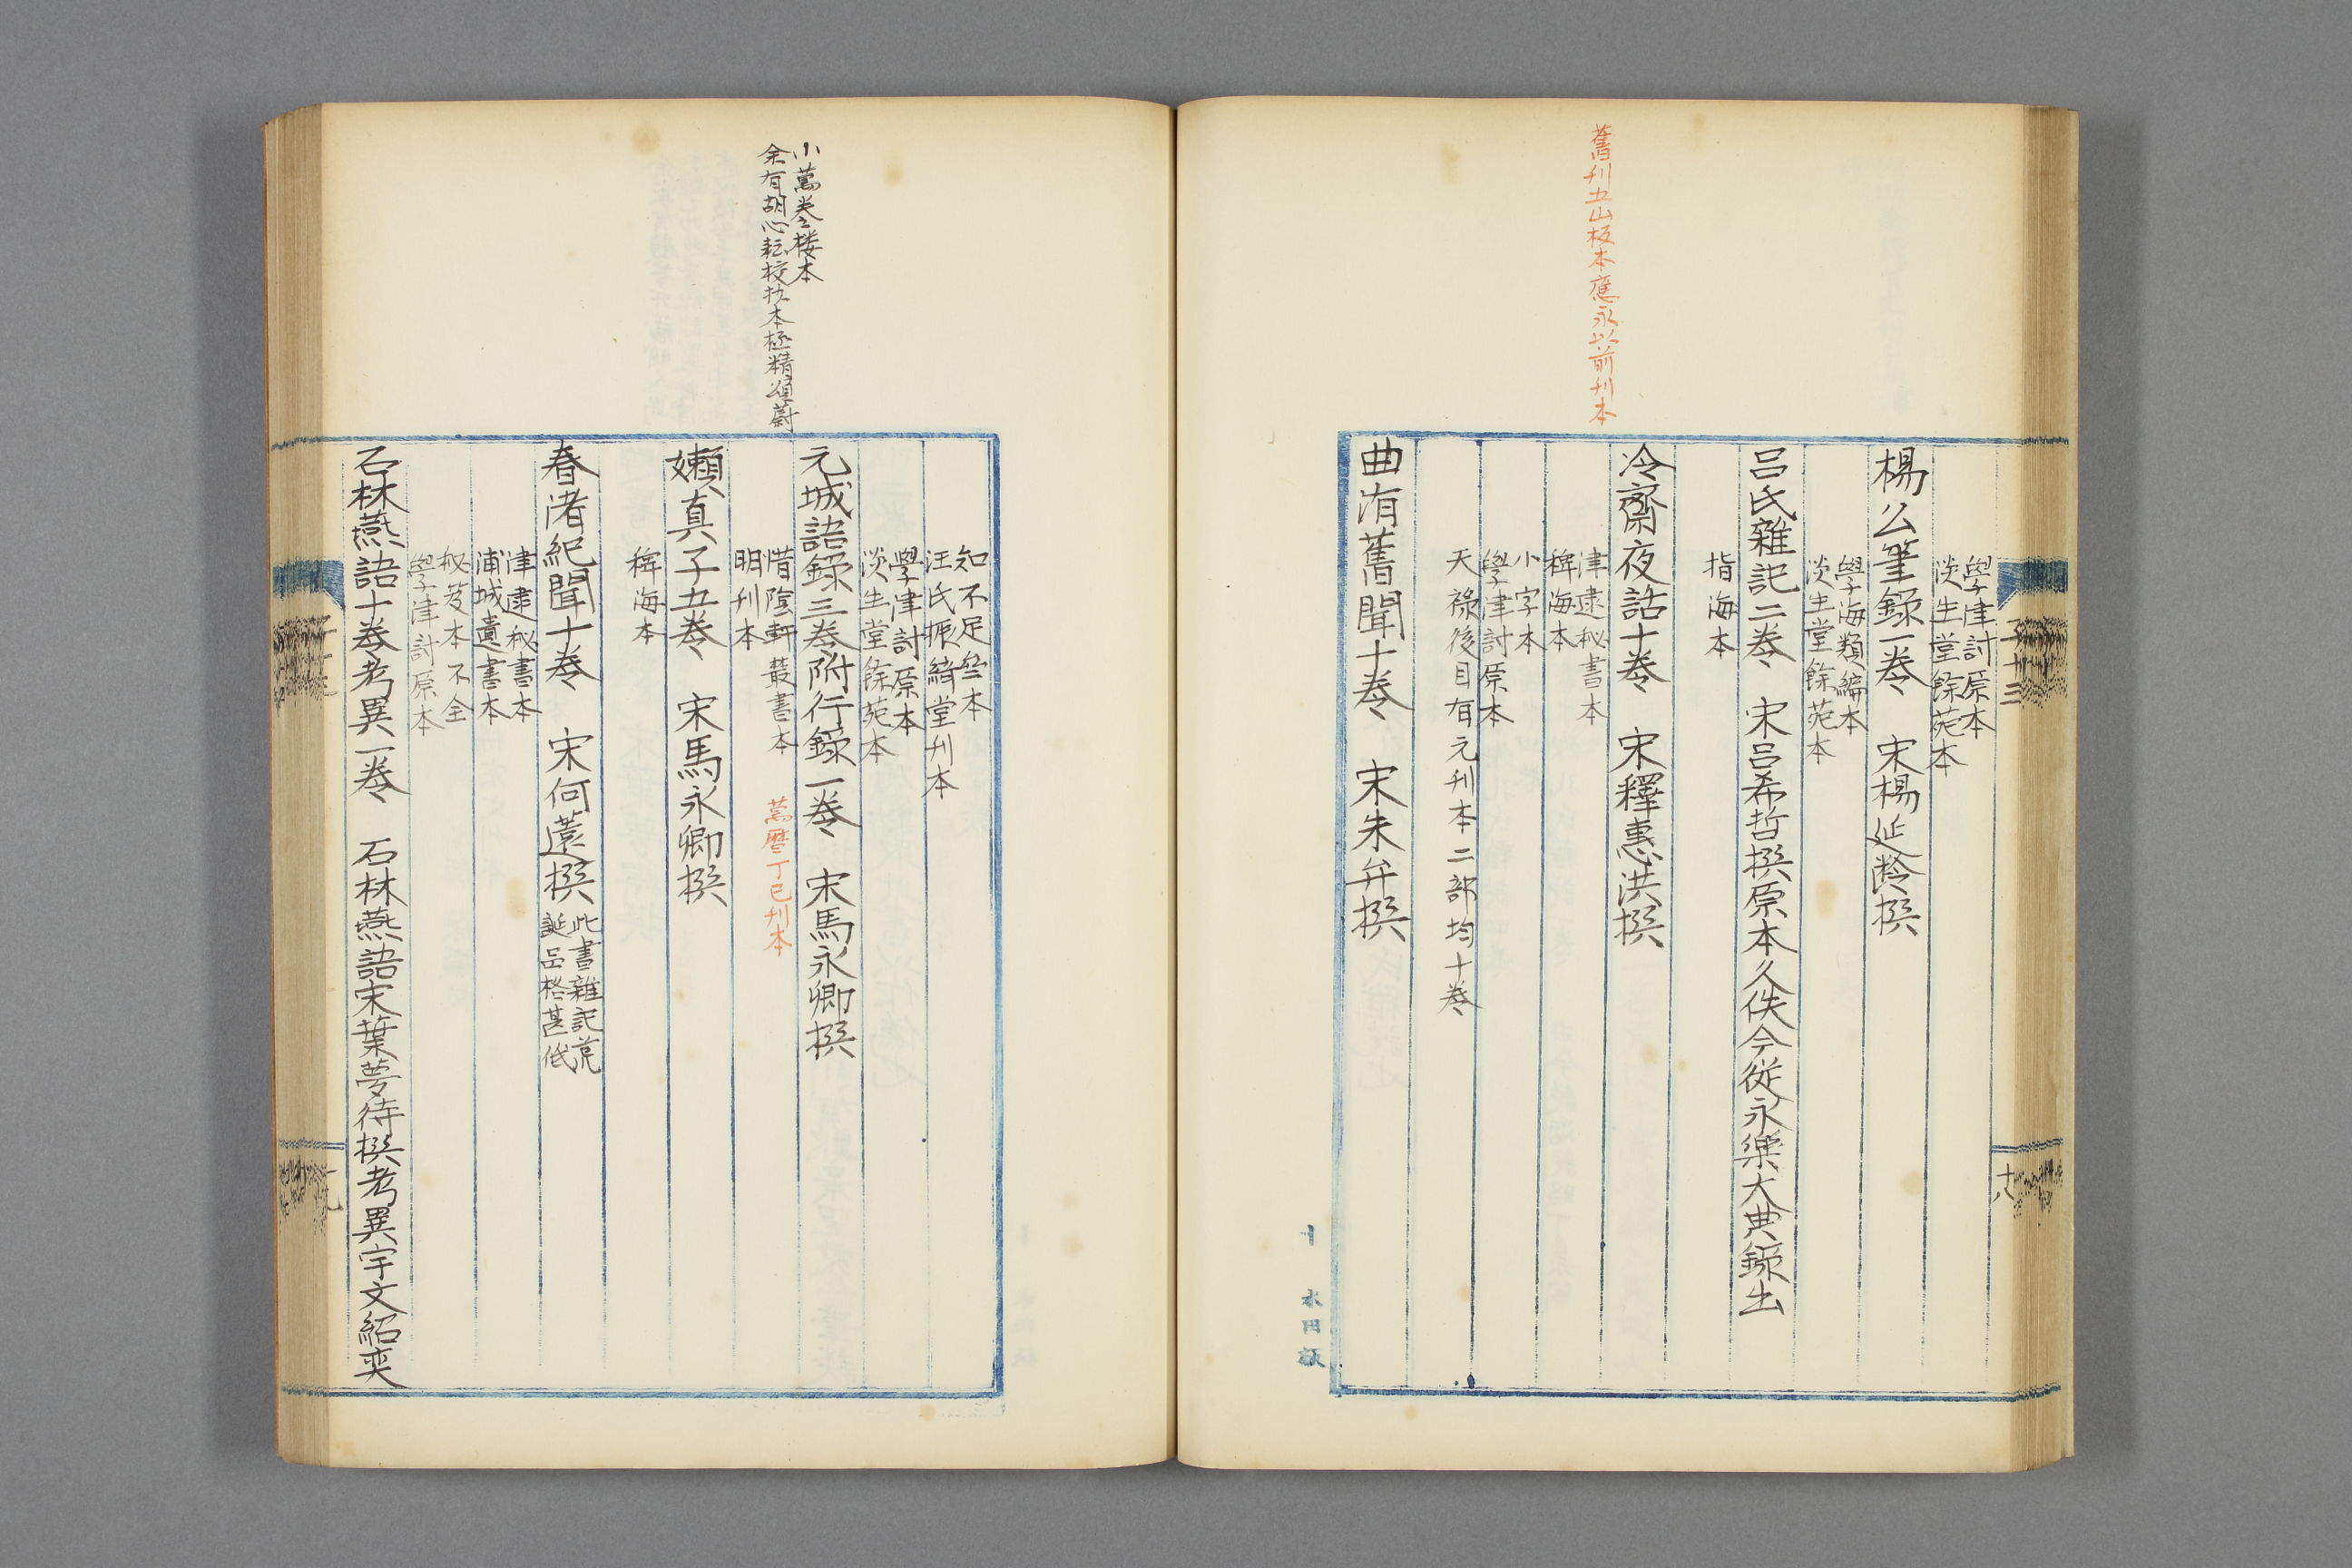 舊刊五山板本應永以前刊本
學津討原本
淡生堂餘苑本
楊公筆錄一卷　宋楊延齡撰
學海類編本
淡生堂餘苑本
呂氏雜記二卷　宋呂希哲撰原本久佚今從永樂大典錄出
指海本
冷齋夜話十卷　宋釋惠洪撰
津逮秘書本
稗海本
小字本
學津討原本
天祿後目有元刊本二部均十卷
曲洧舊聞十卷　宋朱弁撰
子十三
十八
水田板
小萬卷樓本
余有胡心耘校抄本極精頌蔚
知不足叁本
汪氏振綺堂刊本
學津討原本
淡生堂餘苑本
元城語錄三卷附行錄一卷　宋馬永卿撰
惜陰軒叢書本
明刊本
萬曆丁巳刊本
嬾真子五卷　宋馬永卿撰
稗海本
春渚紀聞十卷　宋何薳撰
此書雜記荒
誕品格甚低
津逮秘書本
浦城遺書本
秘笈本不全
學津討原本
石林燕語十卷考異一卷　石林燕語宋葉夢得撰考異宇文紹奕